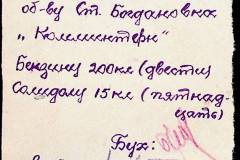 об-ву Ст. Богдановка
„Комминтерн"
Бензину 200 кг (двести
Солидолу 15 кг (пятнад-
цать)
Бух: